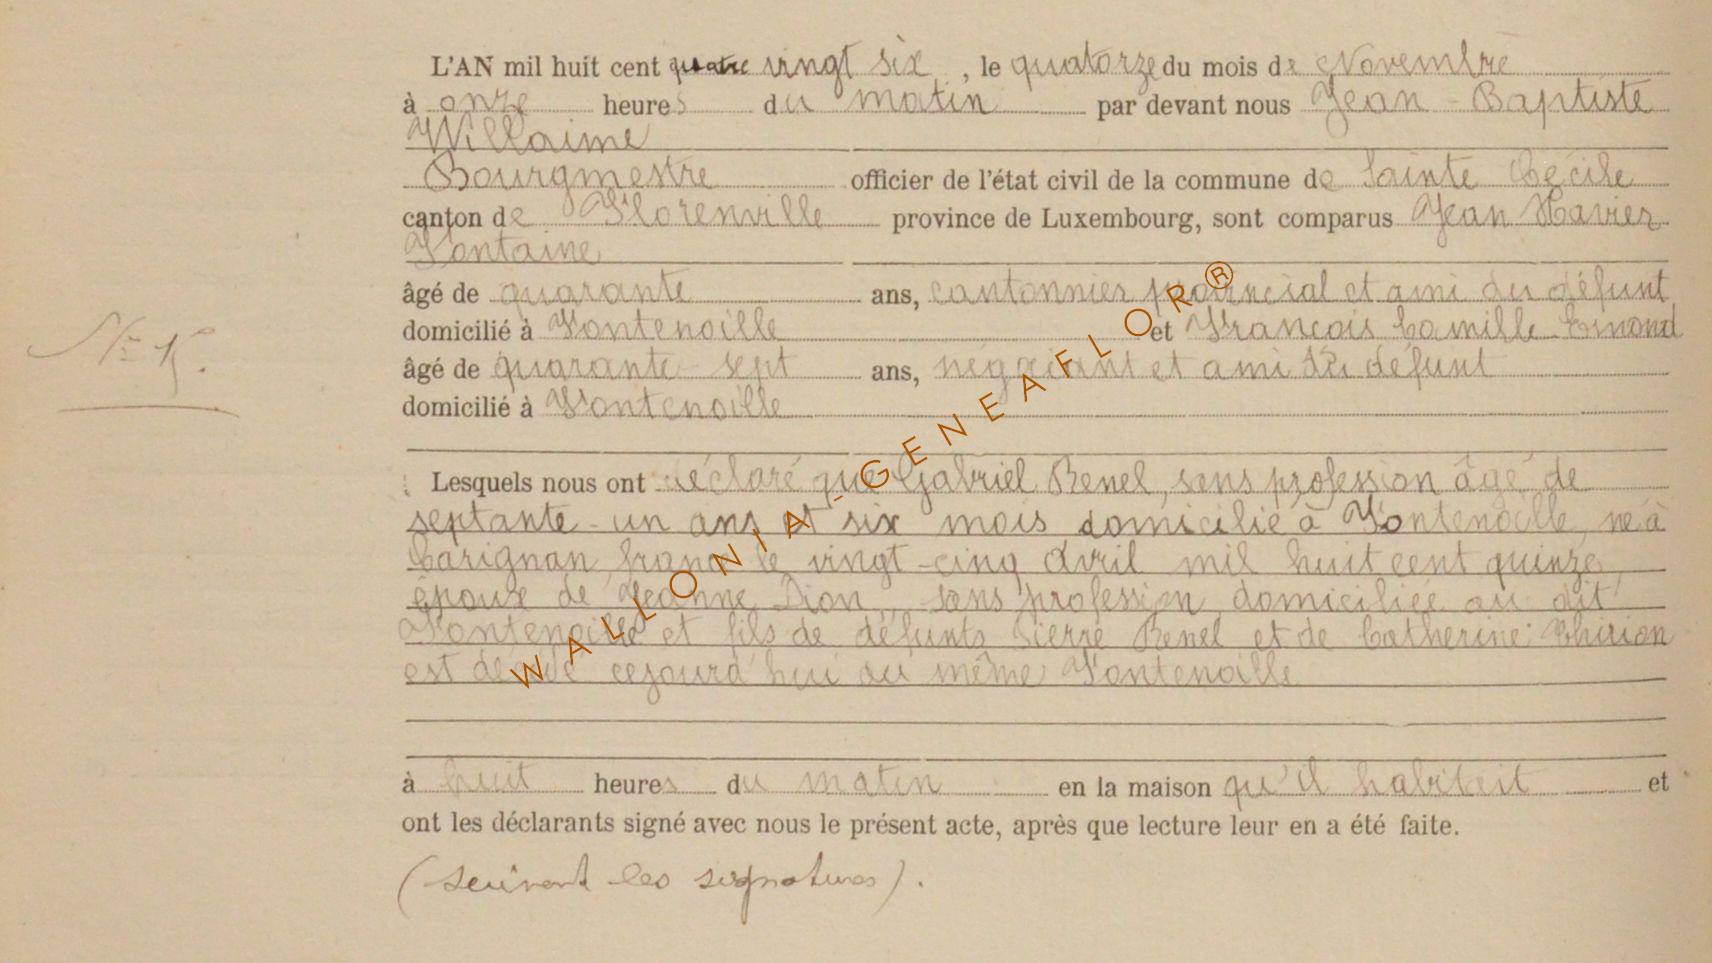 L'AN mil huit cent quatre vingt six, le quatorze du mois de Novembre
à onze heures du matin par devant nous Jean-Baptiste
Willaime
Bourgmestre officier de l'état civil de la commune de Sainte Cécile
canton de Florenville province de Luxembourg, sont comparus Jean Xavier
Fontaine
âgé de quarante ans, cantonnier provincial et ami du défunt
domicilié à Fontenoille et François Camille Emond
âgé de quarante-sept ans, négociant et ami du défunt
domicilié à Fontenoille
Lesquels nous ont déclaré que Gabriel Renel, sans profession âgé de
septante-un ans et six mois domicilié à Fontenoille, né à
Carignan france le vingt-cinq Avril mil huit cent quinze,
époux de Jeanne Dion, sans profession, domiciliée au dit
Fontenoille et fils de défunts Pierre Renel et de Catherine Thirion
est décédé cejourd'hui au même Fontenoille
à huit heures du matin en la maison qu'il habitait et
ont les déclarants signé avec nous le présent acte, après que lecture leur en a été faite.
(suivent les signatures).
WALLONIA - GENEAFLOR®